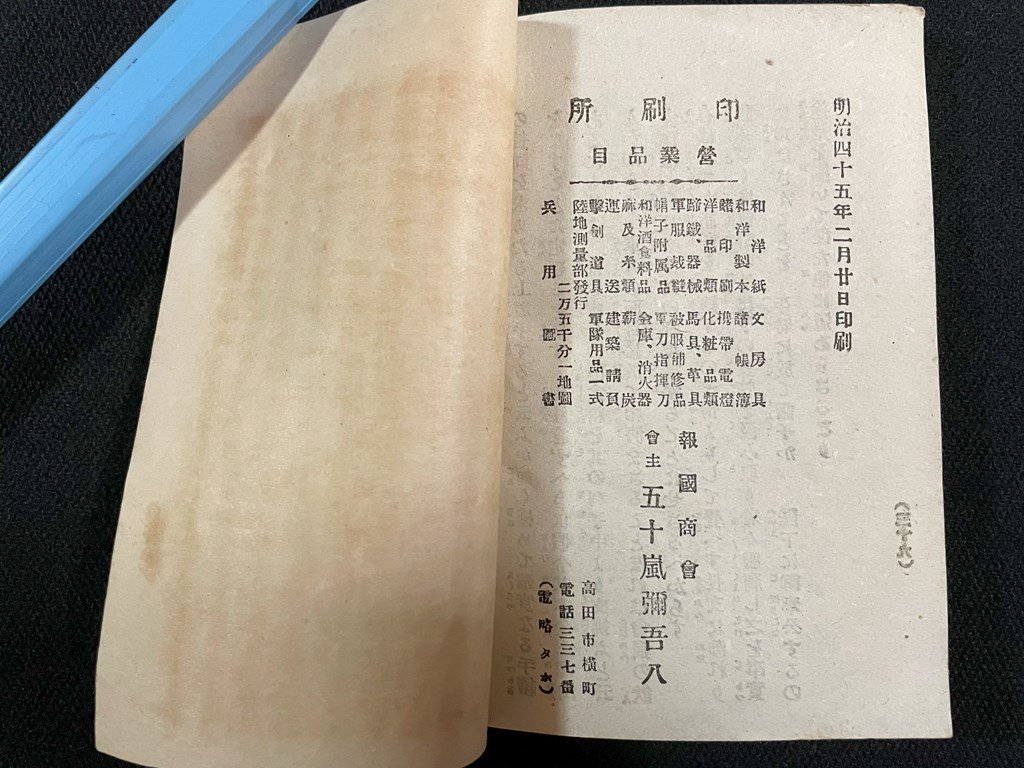 明治四十五年二月廿日印刷
(三十六)
印刷所
營業品目
和洋紙文房具
和洋製本諸帳簿
諸印刷携帶電燈
洋品類化粧品類
蹄鐵、器械馬具、革具
軍服裁縫被服補修品
帽子附属品軍刀指揮刀
和洋酒食料品金庫、消火器
麻及糸類薪炭
運送建築請負
擊劍道具軍隊用品一式
陸地測量部發行二万五千分一地圖
兵用圖書
報國商會
會主五十嵐彌吾八
高田市橫町
電話三三七番